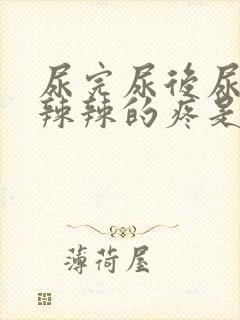 尿完尿后尿
辣辣的疼是
薄荷屋